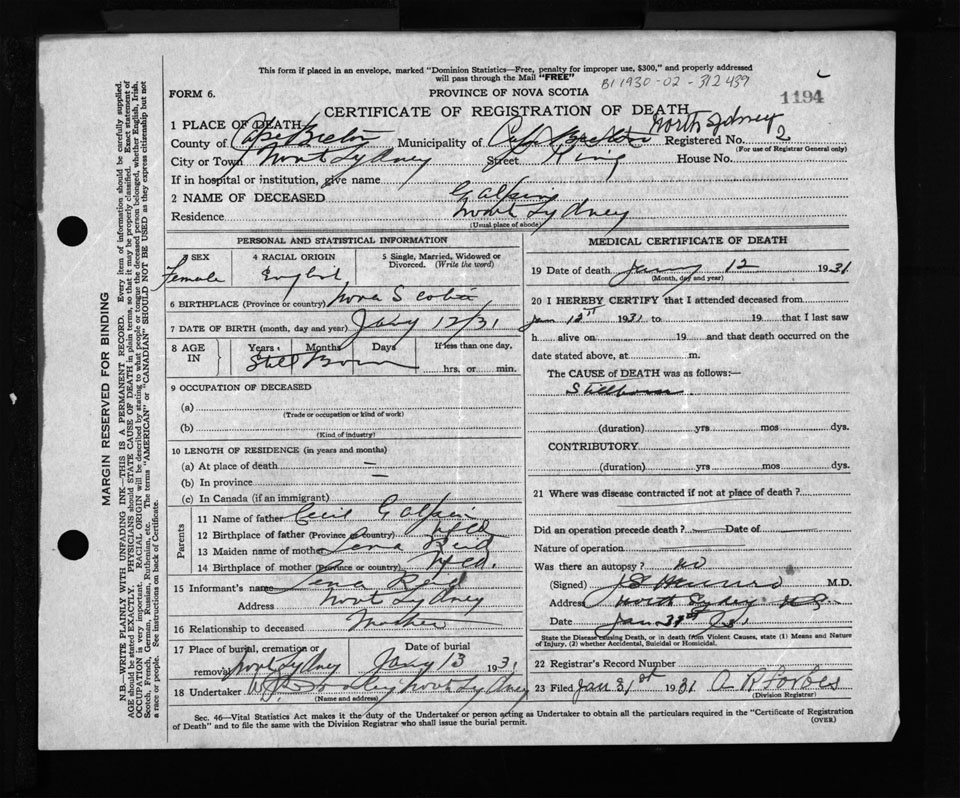 This form if placed in an envelope, marked "Dominion Statistics—Free, penalty for improper use, $300," and properly addressed
will pass through the Mail "FREE"
B1 1930-02-312439
FORM 6.
PROVINCE OF NOVA SCOTIA
1194
CERTIFICATE OF REGISTRATION OF DEATH
North Sydney
1 PLACE OF DEATH
County of Cape Breton Municipality of Cape Breton Registered No. 2
(For use of Registrar General only)
City or Town North Sydney Street King House No.
If in hospital or institution, give name
2 NAME OF DECEASED Galpin
Residence North Sydney
(Usual place of abode)
PERSONAL AND STATISTICAL INFORMATION
3 SEX
Female
4 RACIAL ORIGIN
English
5 Single, Married, Widowed or Divorced. (Write the word)
6 BIRTHPLACE (Province or country) Nova Scotia
7 DATE OF BIRTH (month, day and year) Jany 12/31
8 AGE IN Years Months Days If less than one day,
Still Born
hrs. or min.
9 OCCUPATION OF DECEASED
(a)
(Trade or occupation or kind of work)
(b)
(Kind of industry)
10 LENGTH OF RESIDENCE (in years and months)
(a) At place of death
(b) In province
(c) In Canada (if an immigrant)
Parents
11 Name of father Cecil Galpin
12 Birthplace of father (Province or country) Nfld
13 Maiden name of mother Lena Reid
14 Birthplace of mother (Province or country) Nfld.
15 Informant's name Lena Reid
Address North Sydney
16 Relationship to deceased Mother
17 Place of burial, cremation or removal North Sydney
Date of burial
Jany 13 1931
18 Undertaker North Sydney
(Name and address)
MEDICAL CERTIFICATE OF DEATH
19 Date of death Jany 12 1931
(Month, day and year)
20 I HEREBY CERTIFY that I attended deceased from
Jan 12th 1931 to 19 that I last saw
h alive on 19 and that death occurred on the
date stated above, at m.
The CAUSE of DEATH was as follows:—
Stillborn
(duration) yrs mos dys.
CONTRIBUTORY
(duration) yrs mos dys.
21 Where was disease contracted if not at place of death?
Did an operation precede death? Date of
Nature of operation
Was there an autopsy? no
(Signed) Munro M.D.
Address North Sydney N.S.
Date Jan 31st
State the Disease causing Death, or in death from Violent Causes, state (1) Means and Nature
of Injury, (2) whether Accidental, Suicidal or Homicidal.
22 Registrar's Record Number
23 Filed Jan 31st 1931 A R Forbes
(Division Registrar)
Sec. 46—Vital Statistics Act makes it the duty of the Undertaker or person acting as Undertaker to obtain all the particulars required in the "Certificate of Registration
of Death" and to file the same with the Division Registrar who shall issue the burial permit.
(OVER)
MARGIN RESERVED FOR BINDING
N.B.—WRITE PLAINLY WITH UNFADING INK—THIS IS A PERMANENT RECORD. Every item of information should be carefully supplied.
AGE should be stated EXACTLY. PHYSICIANS should STATE CAUSE OF DEATH in plain terms, so that it may be properly classified. Exact statement of
OCCUPATION is very important. RACIAL ORIGIN will be described by stating to what people or tongue the deceased person belonged, whether English, Irish,
Scotch, French, German, Russian, Ruthenian, etc. The terms "AMERICAN" or "CANADIAN" SHOULD NOT BE USED as they express citizenship but not
a race or people. See instructions on back of Certificate.